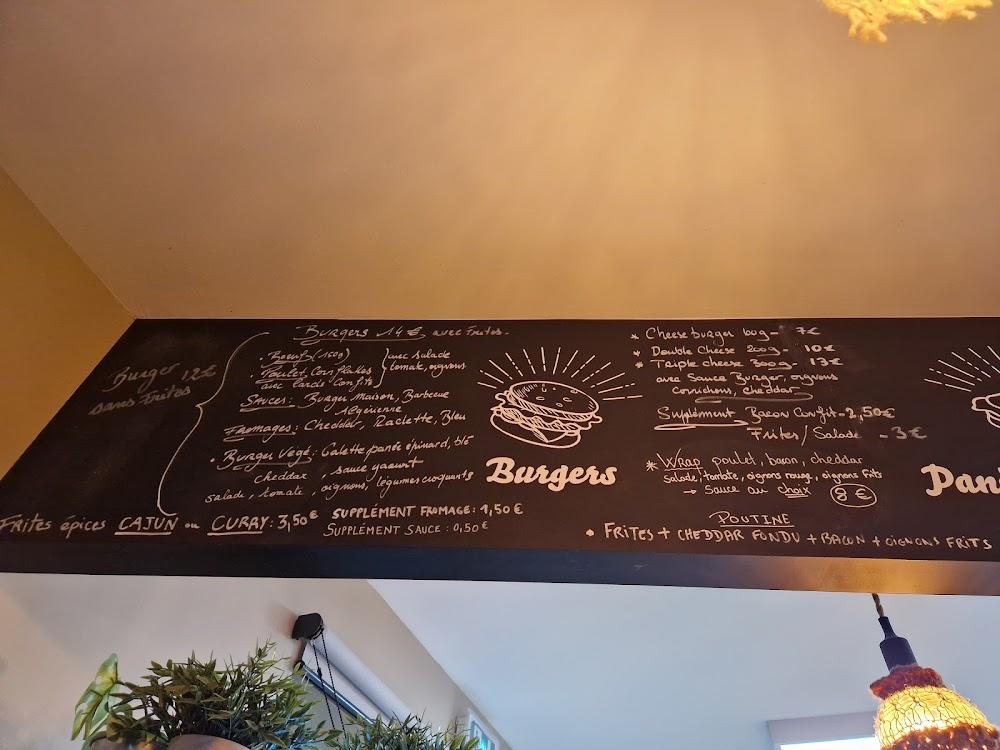 Burger 12€
sans Frites
Burgers 14€ avec Frites.
• Boeuf (150g)
• Poulet Corn flakes
avec lards confits
avec salade
tomate, oignons
Sauces: Burger Maison, Barbecue
Algérienne
Fromages: Cheddar, Raclette, Bleu
• Burger Végé: Galette panée épinard, blé
cheddar, sauce yaourt
salade, tomate, oignons, légumes croquants
Frites épices CAJUN ou CURRY: 3,50€
SUPPLÉMENT FROMAGE: 1,50 €
SUPPLÉMENT SAUCE: 0,50 €
Burgers
* Cheese burger 100g - 7€
* Double Cheese 200g - 10€
* Triple cheese 300g - 13€
avec Sauce Burger, oignons
cornichons, cheddar
Supplément Bacon Confit - 2,50€
Frites/Salade - 3€
* Wrap poulet, bacon, cheddar
salade, tomate, oignons rouge, oignons frits
→ sauce au choix 8 €
POUTINE
• FRITES + CHEDDAR FONDU + BACON + OIGNONS FRITS
Pan